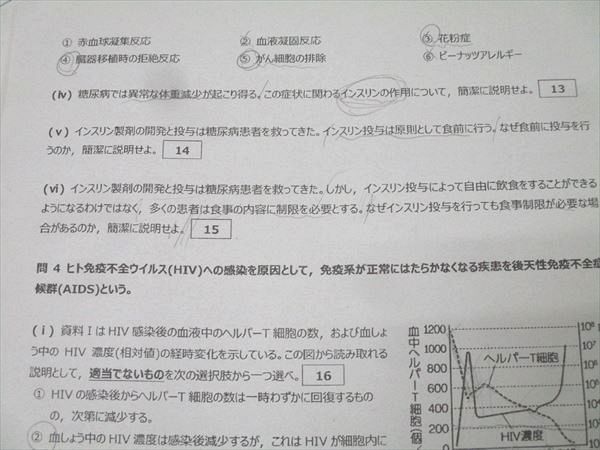 ① 赤血球凝集反応 ② 血液凝固反応 ③ 花粉症
④ 臓器移植時の拒絶反応 ⑤ がん細胞の排除 ⑥ ピーナッツアレルギー
(ⅳ) 糖尿病では異常な体重減少が起こり得る。この症状に関わるインスリンの作用について，簡潔に説明せよ。 13
(ⅴ) インスリン製剤の開発と投与は糖尿病患者を救ってきた。インスリン投与は原則として食前に行う。なぜ食前に投与を行
うのか，簡潔に説明せよ。 14
(ⅵ) インスリン製剤の開発と投与は糖尿病患者を救ってきた。しかし，インスリン投与によって自由に飲食をすることができる
ようになるわけではなく，多くの患者は食事の内容に制限を必要とする。なぜインスリン投与を行っても食事制限が必要な場
合があるのか，簡潔に説明せよ。 15
問 4 ヒト免疫不全ウイルス(HIV)への感染を原因として，免疫系が正常にはたらかなくなる疾患を後天性免疫不全症
候群(AIDS)という。
(ⅰ) 資料 I は HIV 感染後の血液中のヘルパーT 細胞の数，および血しょ
う中の HIV 濃度(相対値)の経時変化を示している。この図から読み取れる
説明として，適当でないものを次の選択肢から一つ選べ。 16
① HIV の感染後からヘルパーT 細胞の数は一時わずかに回復するもの
の，次第に減少する。
② 血しょう中の HIV 濃度は感染後減少するが，これは HIV が細胞内に
血中ヘルパーT細胞(個
1200
1000
800
600
400
200
0
ヘルパーT細胞
HIV濃度
10⁸
10⁷
10⁶
10⁵
10⁴
10³